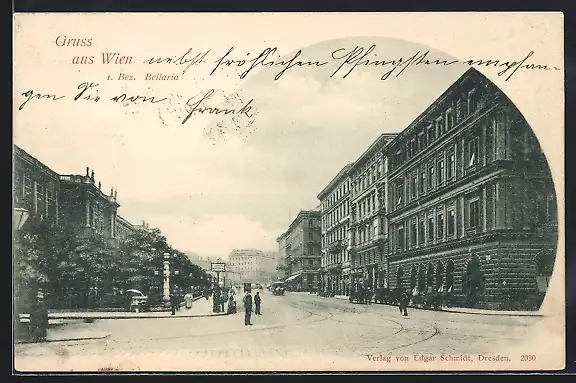 Gruss
aus Wien nebst fröhlichen Pfingsten empfan-
1. Bez. Bellaria
gen Sie von Frank
Verlag von Edgar Schmidt, Dresden. 2030